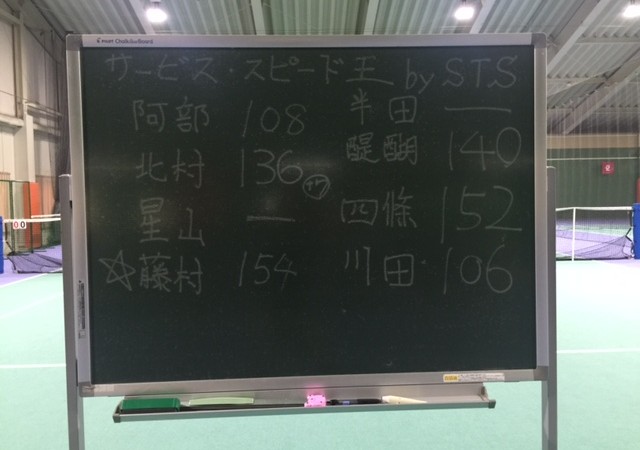 サービス・スピード王 by STS
阿部 108
北村 136
星山 —
☆藤村 154
半田 —
醍醐 140
四條 152
川田 106
00